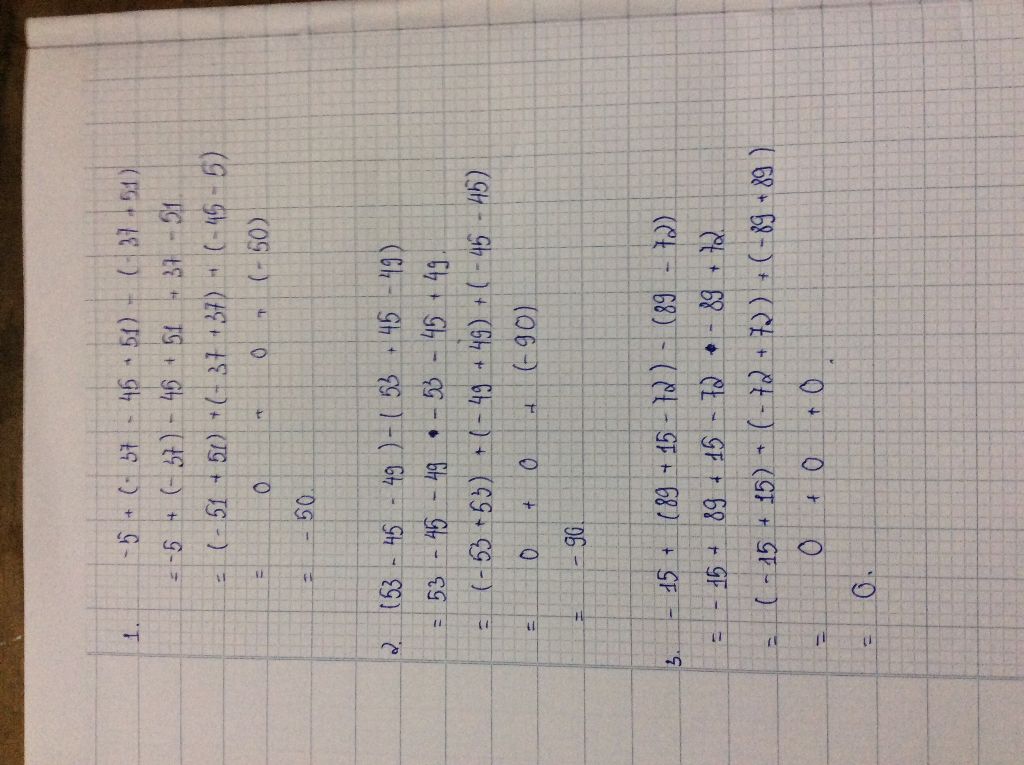 1. -5 + (-37 - 45 + 51) - (-37 + 51)
= -5 + (-37) - 45 + 51 + 37 - 51
= (-51 + 51) + (-37 + 37) + (-45 - 5)
= 0 + 0 + (-50)
= -50.
2. (53 - 45 - 49) - (53 + 45 - 49)
= 53 - 45 - 49 - 53 - 45 + 49
= (-53 + 53) + (-49 + 49) + (-45 - 45)
= 0 + 0 + (-90)
= -90.
3. -15 + (89 + 15 - 72) - (89 - 72)
= -15 + 89 + 15 - 72 - 89 + 72
= (-15 + 15) + (-72 + 72) + (-89 + 89)
= 0 + 0 + 0
= 0.